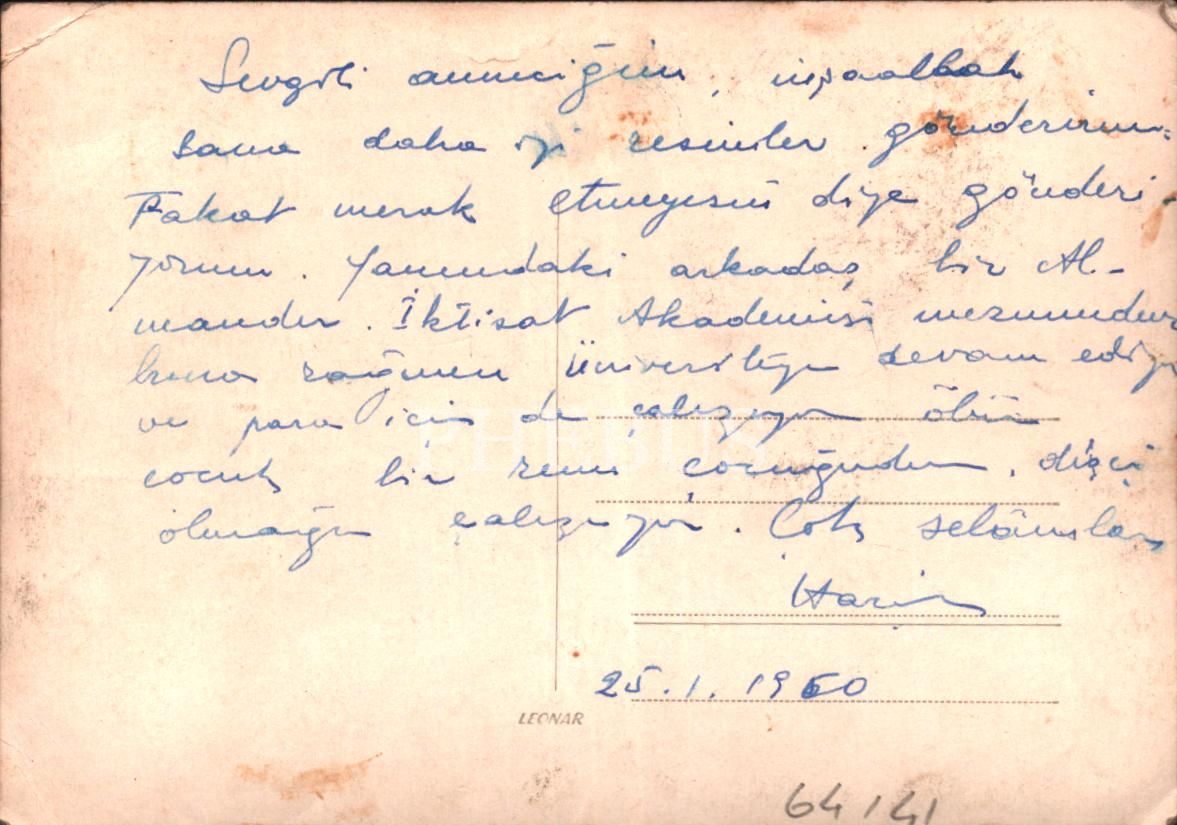 Sevgili anneciğim, inşaallah
sana daha iyi resimler gönderirim.
Fakat merak etmeyesin diye gönderi
yorum. Yanımdaki arkadaş bir Al-
mandır. İktisat Akademisi mezunudur
buna rağmen Üniversiteye devam ediyor
ve para için de çalışıyor öbür
çocuk bir rum çocuğudur, dişçi
olmağa çalışıyor. Çok selâmlar
25.1.1960
PHEBUS
LEONAR
64/41